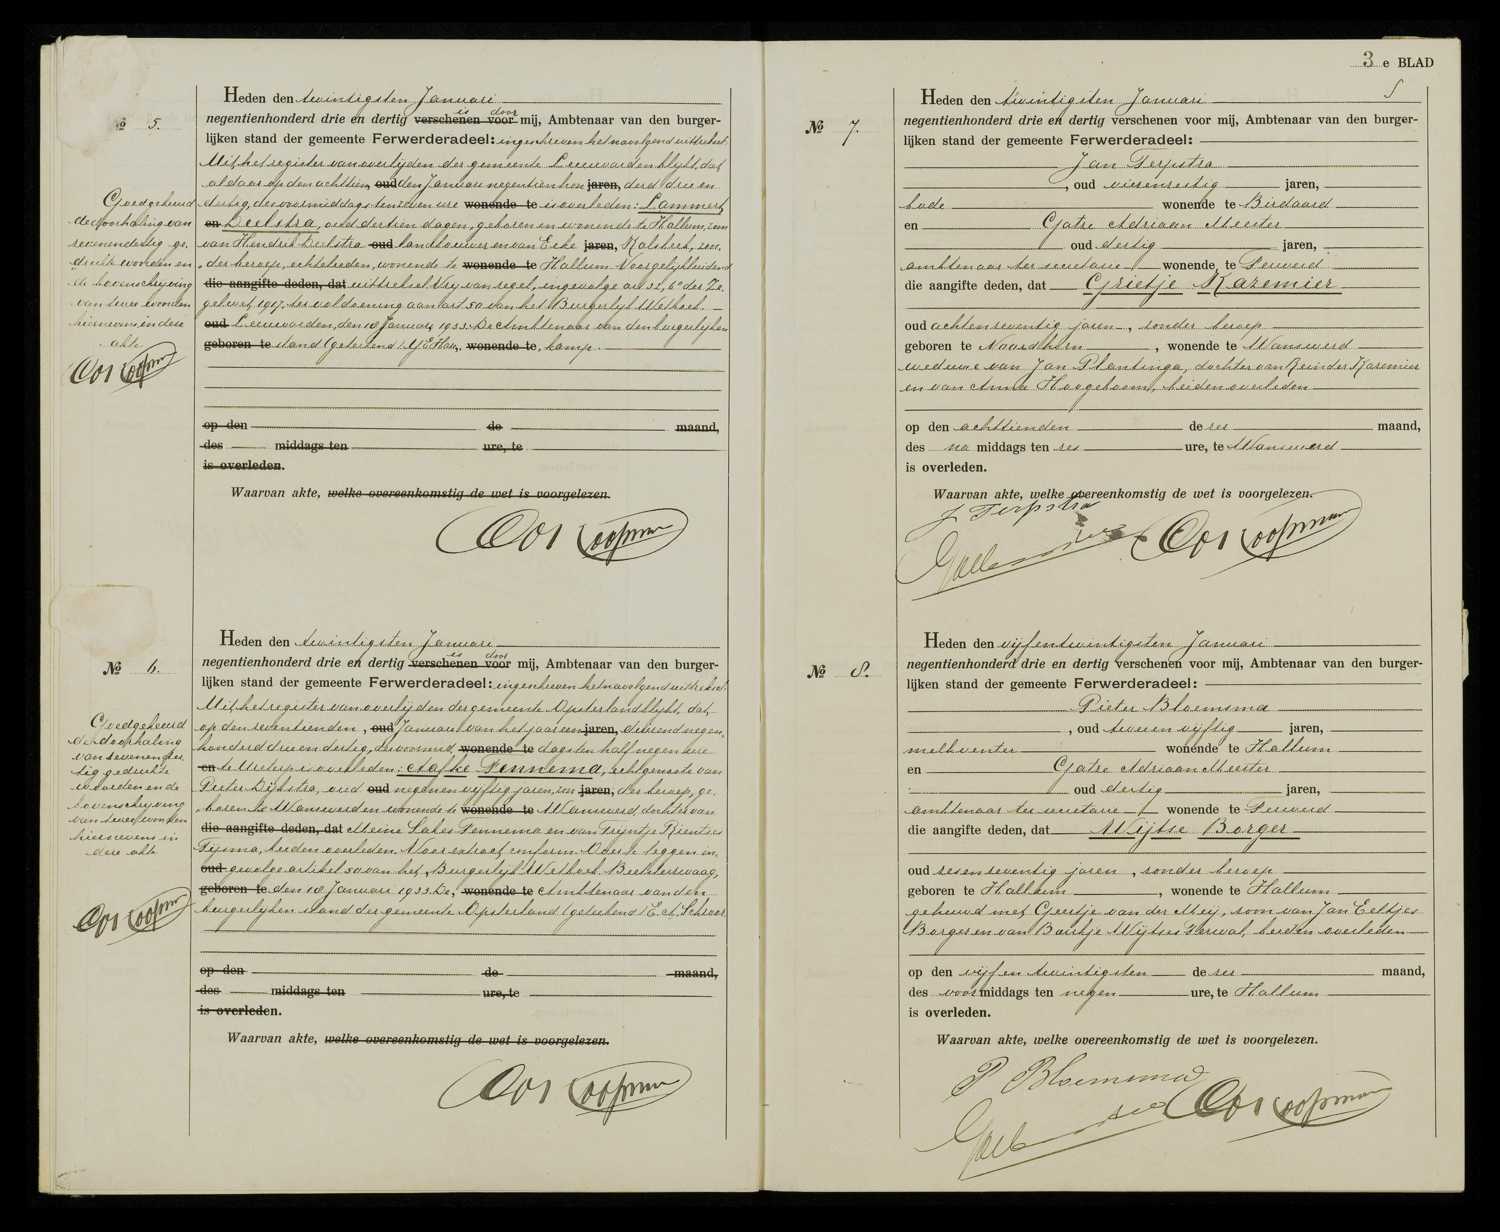 3 e BLAD
5
Nº 5.
Heden den twintigsten Januari
is door
negentienhonderd drie en dertig verschenen voor mij, Ambtenaar van den burger-
lijken stand der gemeente Ferwerderadeel: ingeschreven het navolgend uittreksel.
Uit het register van overlijden der gemeente Leeuwarden blijkt, dat
aldaar op den achttien oud den Januari negentienhon jaren, derd drie en
dertig, des voormiddags ten zeven ure wonende te is overleden: Lammert
en Deelstra, oud dertien dagen, geboren en wonende te Hallum, zoon
van Hendrik Deelstra oud landbouwer en van Eeke jaren, Kalsbeek, zon-
der beroep, echtelieden, wonende te wonende te Hallum. Voor gelijkluidend
die aangifte deden, dat uittreksel Vrij van zegel, ingevolge art 31, 6° der Ze-
gelwet 1917, ter voldoening aan art. 50 van het Burgerlijk Wetboek.
oud Leeuwarden, den 18 Januari 1933. De Ambtenaar van den burgerlijken
geboren te stand (geteekend) wonende te, kamp.
op den de maand,
des middags ten ure, te
is overleden.
Waarvan akte, welke overeenkomstig de wet is voorgelezen.
Goedgekeurd
de doorhaling van
zevenendertig ge-
drukte woorden en
de bovenschrijving
van twee woorden
hiernevens in deze
akte.
Nº 6.
Heden den twintigsten Januari
is door
negentienhonderd drie en dertig verschenen voor mij, Ambtenaar van den burger-
lijken stand der gemeente Ferwerderadeel: ingeschreven het navolgend uittreksel.
Uit het register van overlijden der gemeente Opsterland blijkt, dat
op den zeventienden, oud Januari van het jaar een jaren, duizend negen-
honderd drie en dertig, des voormid wonende te dags ten half negen ure
en te Ureterp is overleden: Aafke Fennema, echtgenoote van
Pieter Dijkstra, oud oud negen en vijftig jaren, zon jaren, der beroep, ge-
boren te Wanswerd en wonende te wonende te Wanswerd, dochter van
die aangifte deden, dat Meine Sakes Fennema en van Trijntje Rienties
beiden overleden. Voor extract conform. Over te leggen in-
oud gevolge artikel 50 van het Burgerlijk Wetboek. Beetsterzwaag,
geboren te den 18 Januari 1933. De, wonende te Ambtenaar van den
burgerlijken stand der gemeente Opsterland (geteekend) E. A. Schroor
op den de maand,
des middags ten ure, te
is overleden.
Waarvan akte, welke overeenkomstig de wet is voorgelezen.
Goedgekeurd
de doorhaling
van zevenender-
tig gedrukte
woorden en de
bovenschrijving
van twee woorden
hiernevens in
deze akte
Nº 7.
Heden den twintigsten Januari
negentienhonderd drie en dertig verschenen voor mij, Ambtenaar van den burger-
lijken stand der gemeente Ferwerderadeel:
Jan Terpstra
, oud vierenzestig jaren,
bode wonende te Birdaard
en Gatze Adriaan Meester
oud dertig jaren,
ambtenaar ter secretarie wonende te Ferwerd
die aangifte deden, dat Grietje Kazemier
oud achtenzeventig jaren, zonder beroep
geboren te Noordhorn, wonende te Wanswerd
weduwe van Jan Plantinga, dochter van Reinder Kazemier
en van Anna Hoogeboom, beiden overleden
op den achttienden dezer maand,
des na middags ten zes ure, te Wanswerd
is overleden.
Waarvan akte, welke overeenkomstig de wet is voorgelezen.
J Terpstra
Nº 8.
Heden den vijfentwintigsten Januari
negentienhonderd drie en dertig verschenen voor mij, Ambtenaar van den burger-
lijken stand der gemeente Ferwerderadeel:
Pieter Bloemsma
, oud tweeen vijftig jaren,
melkventer wonende te Hallum
en Gatze Adriaan Meester
oud dertig jaren,
ambtenaar ter secretarie wonende te Ferwerd
die aangifte deden, dat Wijtse Borger
oud zesenzeventig jaren, zonder beroep
geboren te Hallum, wonende te Hallum
gehuwd met Geertje van der Meij, zoon van Jan Eeltjes
Borger en van Baukje Wijtses Ferwal, beiden overleden
op den vijfentwintigsten dezer maand,
des voor middags ten negen ure, te Hallum
is overleden.
Waarvan akte, welke overeenkomstig de wet is voorgelezen.
P Bloemsma